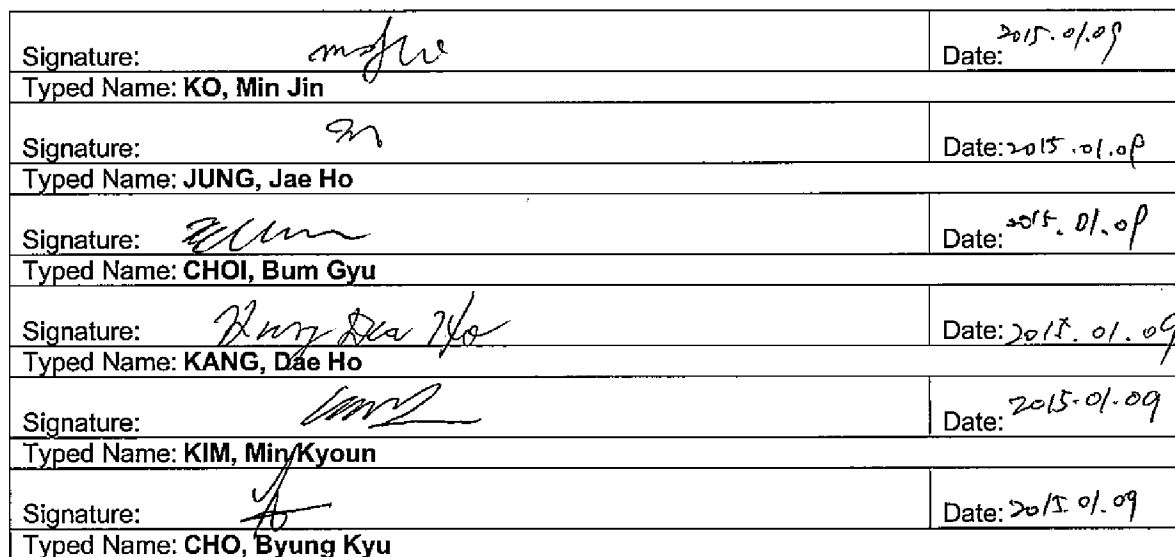 Signature: Date: 2015.01.09
Typed Name: KO, Min Jin
Signature: Date: 2015.01.09
Typed Name: JUNG, Jae Ho
Signature: Date: 2015.01.09
Typed Name: CHOI, Bum Gyu
Signature: Kang Dea Ho Date: 2015.01.09
Typed Name: KANG, Dae Ho
Signature: Date: 2015.01.09
Typed Name: KIM, Min Kyoun
Signature: Date: 2015.01.09
Typed Name: CHO, Byung Kyu